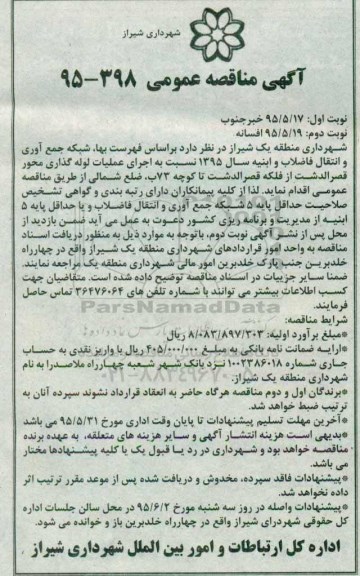 شهرداری شیراز
آگهی مناقصه عمومی ۳۹۸-۹۵
نوبت اول: ۹۵/۵/۱۷ خبرجنوب
نوبت دوم: ۹۵/۵/۱۹ افسانه
شهرداری منطقه یک شیراز در نظر دارد براساس فهرست بها، شبکه جمع آوری
و انتقال فاضلاب و ابنیه سال ۱۳۹۵ نسبت به اجرای عملیات لوله گذاری محور
قصرالدشت از فلکه قصرالدشت تا کوچه ۷۳ب، ضلع شمالی از طریق مناقصه
عمومی اقدام نماید. لذا از کلیه پیمانکاران دارای رتبه بندی و گواهی تشخیص
صلاحیت حداقل پایه ۵ شبکه جمع آوری و انتقال فاضلاب و یا حداقل پایه ۵
ابنیه از مدیریت و برنامه ریزی کشور دعوت به عمل می آید ضمن بازدید از
محل پس از نشر آگهی نوبت دوم، باتوجه به موارد ذیل به منظور دریافت اسناد
مناقصه به واحد امور قراردادهای شهرداری منطقه یک شیراز واقع در چهارراه
خلدبرین جنب پارک خلدبرین امور مالی شهرداری منطقه یک مراجعه نمایند.
ضمنا سایر جزییات در اسناد مناقصه توضیح داده شده است. متقاضیان جهت
کسب اطلاعات بیشتر می توانند با شماره تلفن های ۶۴-۳۶۴۷۶۰ تماس حاصل
فرمایند.
شرایط مناقصه:
*مبلغ برآورد اولیه: ۸/۰۸۳/۸۹۷/۳۰۳ ریال
*ارایه ضمانت نامه بانکی به مبلغ ۴۰۵/۰۰۰/۰۰۰ ریال یا واریز نقدی به حساب
جاری شماره ۱۰۰۲۳۸۶۰۱۸ نزد بانک شهر شعبه چهارراه ملاصدرا به نام
شهرداری منطقه یک شیراز.
*برندگان اول و دوم مناقصه هرگاه حاضر به انعقاد قرارداد نشوند سپرده آنان به
ترتیب ضبط خواهد شد.
*آخرین مهلت تسلیم پیشنهادات تا پایان وقت اداری مورخ ۹۵/۵/۳۱ می باشد
*بدیهی است هزینه انتشار آگهی و سایر هزینه های متعلقه، به عهده برنده
مناقصه خواهد بود و شهرداری در رد یا قبول یک یا کلیه پیشنهادها مختار
می باشد.
*پیشنهادات فاقد سپرده، مخدوش و دریافت شده پس از موعد مقرر ترتیب اثر
داده نخواهد شد.
*پیشنهادات واصله در روز سه شنبه مورخ ۹۵/۶/۲ در محل سالن جلسات اداره
کل حقوقی شهردرای شیراز واقع در چهارراه خلدبرین باز و خوانده می شود.
اداره کل ارتباطات و امور بین الملل شهرداری شیراز